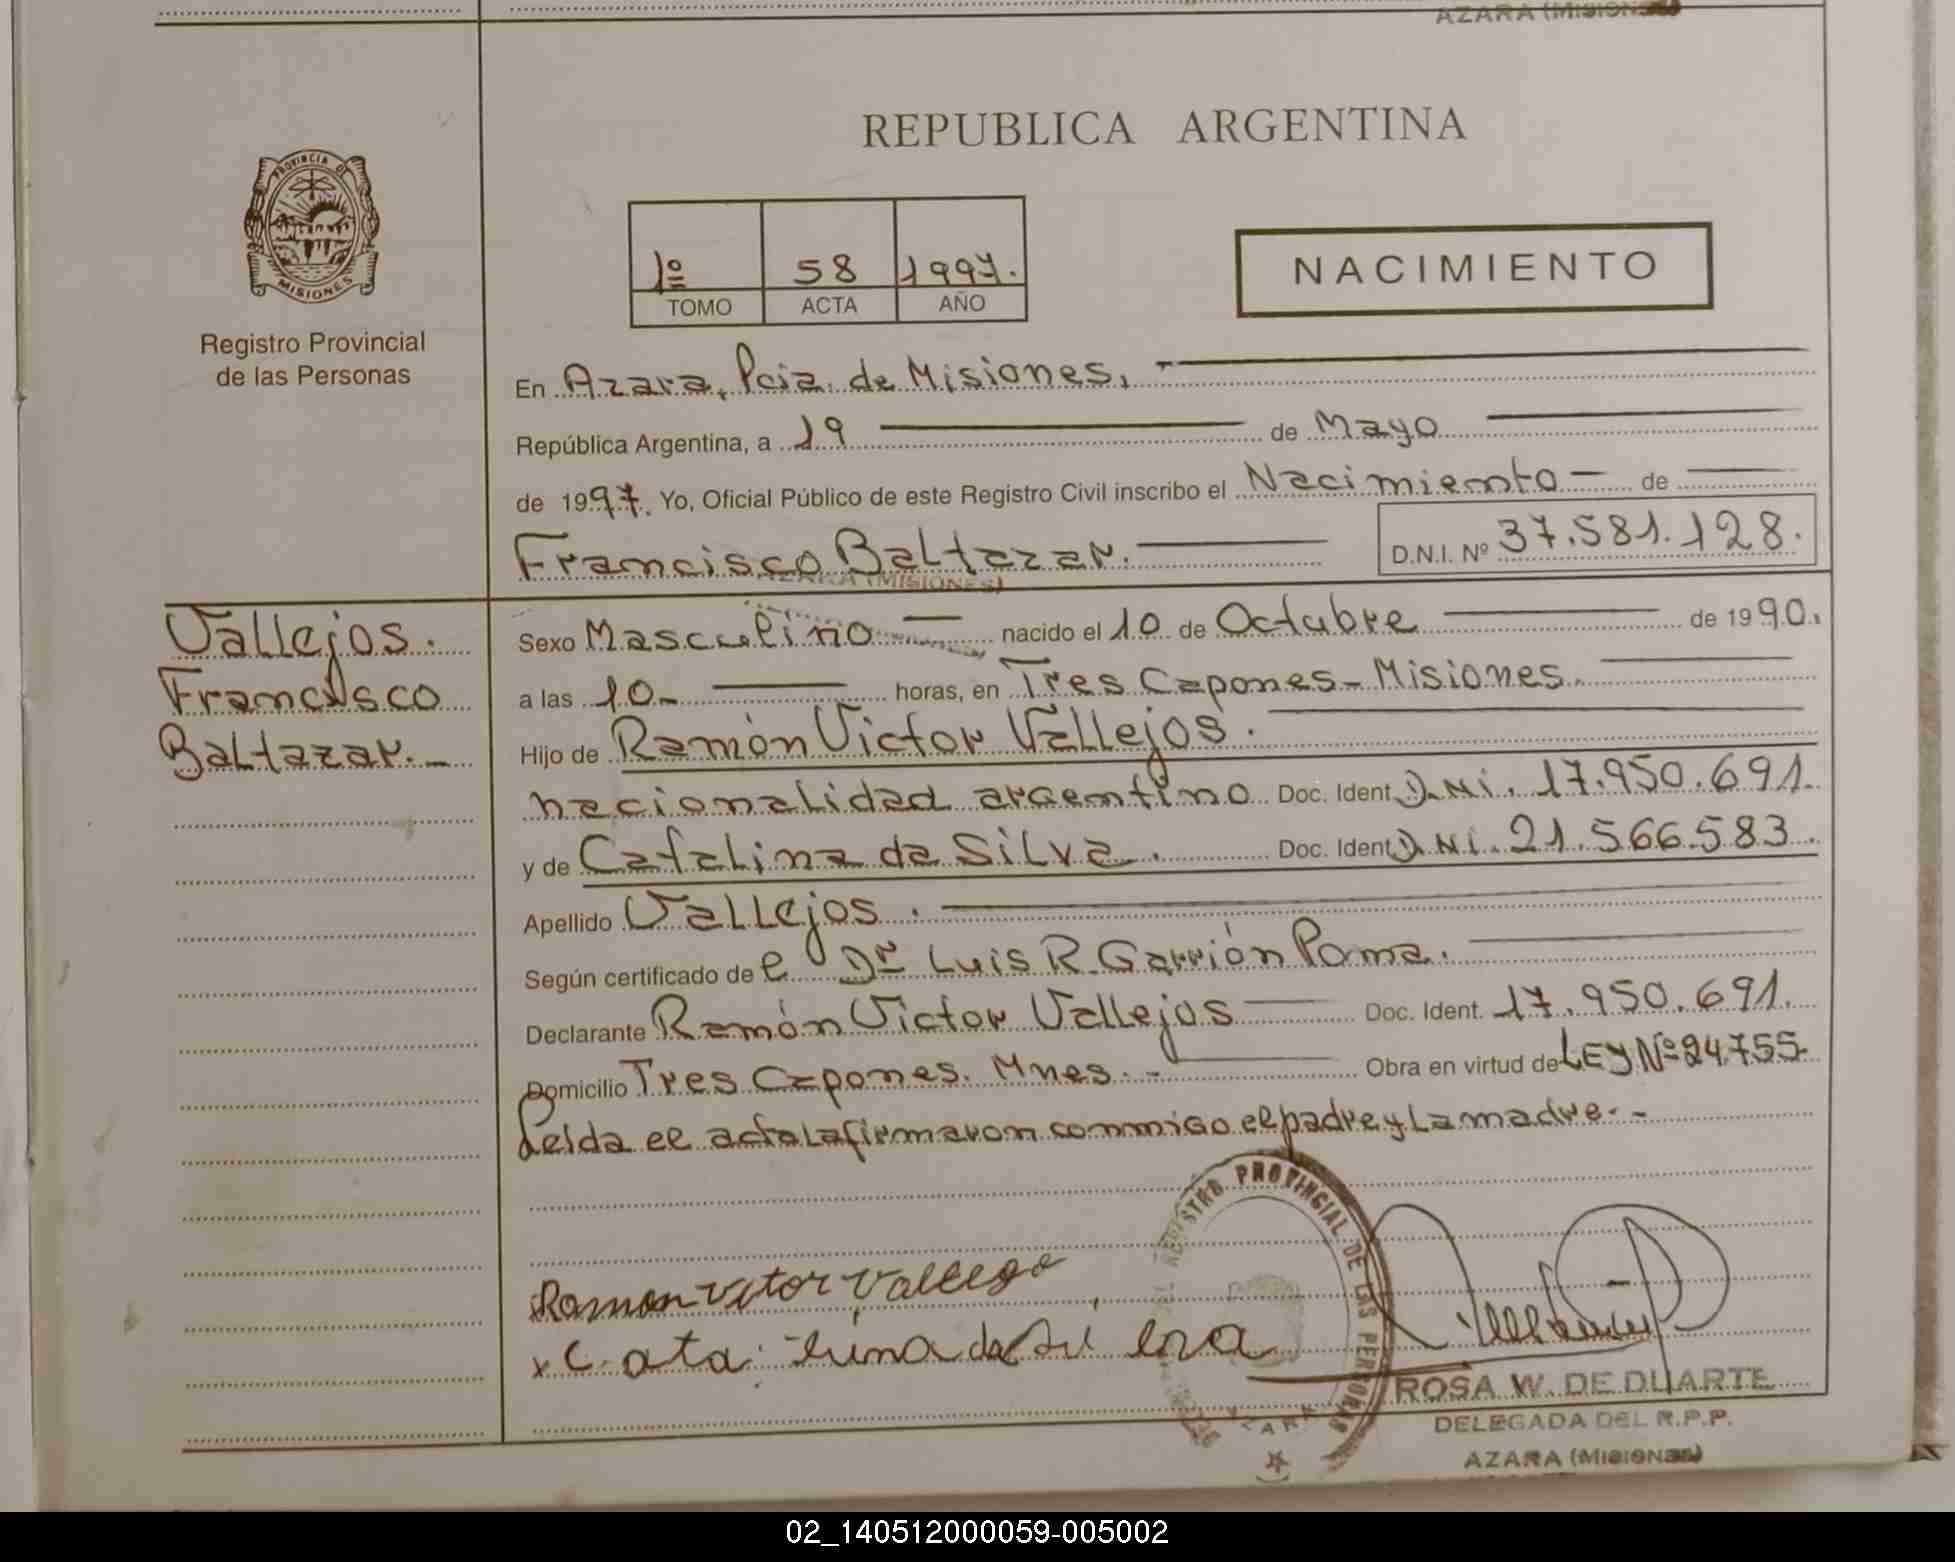 AZARA (MISIONES)
REPUBLICA ARGENTINA
PROVINCIA DE
MISIONES
Registro Provincial
de las Personas
1º 58 1997.
TOMO ACTA AÑO
NACIMIENTO
En Azara, Pcia. de Misiones.
República Argentina, a 19 de Mayo
de 1997. Yo, Oficial Público de este Registro Civil inscribo el Nacimiento - de
Francisco Baltazar. D.N.I. Nº 37.581.128.
AZARA (MISIONES)
Vallejos.
Francisco
Baltazar.-
Sexo Masculino nacido el 10 de Octubre de 1990.
a las 10- horas, en Tres Capones - Misiones.
Hijo de Ramón Victor Vallejos.
nacionalidad argentino Doc. Ident. D.Ni. 17.950.691.
y de Catalina da Silva. Doc. Ident. D.Ni. 21.566.583.
Apellido Vallejos.
Según certificado de e Dr Luis R. Garrión Poma.
Declarante Ramón Victor Vallejos Doc. Ident. 17.950.691.
Domicilio Tres Capones. Mnes. - Obra en virtud de LEY Nº 24.755.
Leida el acta la firmaron conmigo el padre y la madre.-
REGISTRO PROVINCIAL DE LAS PERSONAS
AZARA
Ramon Vitor Vallego
x Cata lina da Sil va
ROSA W. DE DUARTE
DELEGADA DEL R.P.P.
AZARA (MISIONES)
02_140512000059-005002